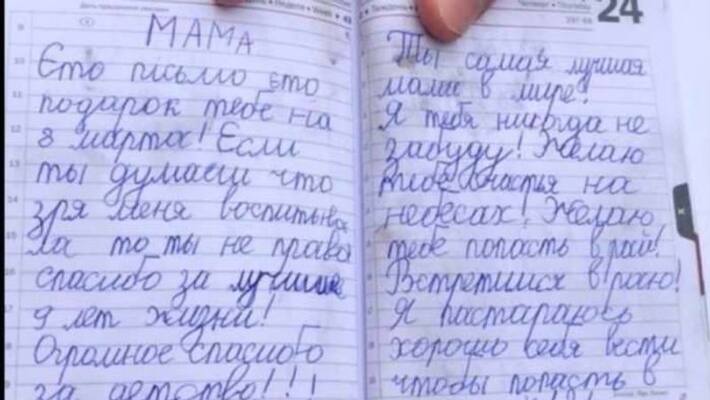 24
МАМА
Єто письмо єто
подарок тебе на
8 марта! Если
ты думаеш что
зря меня воспитыва
ла то ты не права
спасибо за лучшие
9 лет жизни!
Огромное спасибо
за детство!!!
Ты самая лучшая
мама в мире!
Я тебя никогда не
забуду! Желаю
тебе счастья на
небесах! Желаю
тебе попасть в рай!
Встретимся в раю!
Я пастараюсь
хорошо себя вести
чтобы попасть в